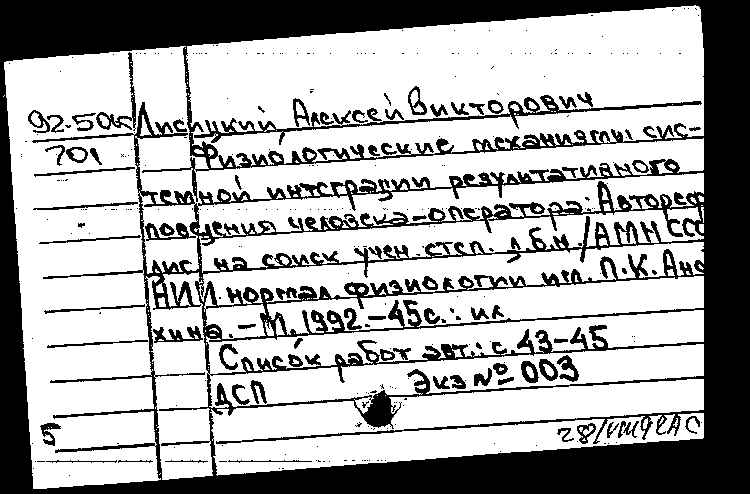 92-5045 Лисицкий, Алексей Викторович
701 Физиологические механизмы сис-
темной интеграции результативного
поведения человека-оператора: Автореф
дис. на соиск учен. степ. д.б.н./АМН ССС
НИИ нормал. физиологии им. П.К. Ано
хина. – М., 1992. – 45с.: ил.
Список работ авт.: с. 43-45
ДСП Экз № 003
Б 28/VIII92АС